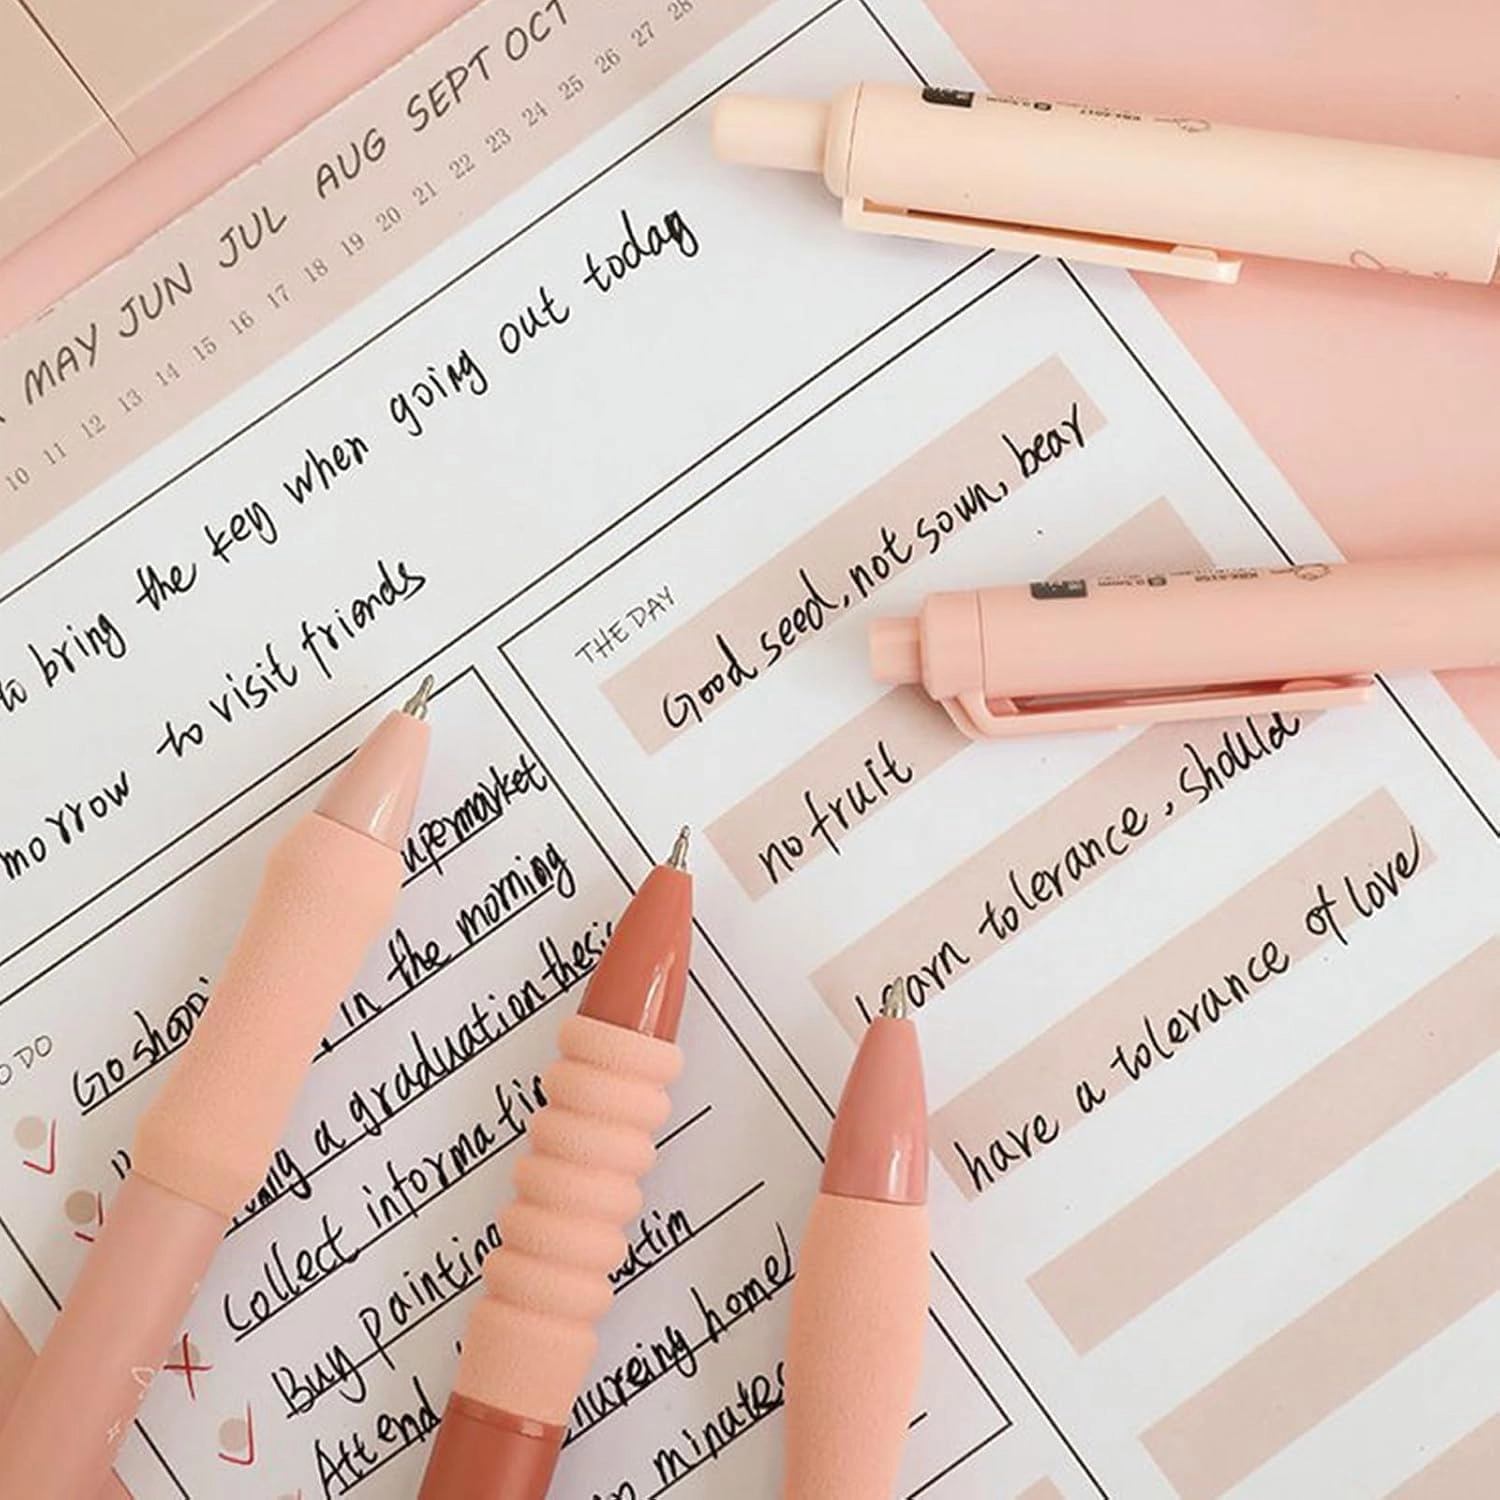 MAY JUN JUL AUG SEPT OCT
10 11 12 13 14 15 16 17 18 19 20 21 22 23 24 25 26 27 28
to bring the key when going out today
morrow to visit friends
THE DAY
Good seed, not sown, bear
no fruit
Learn tolerance, should
have a tolerance of love
O DO
Go shoppi upermarket
in the morning
a graduation thesis
Collect informatin
Buy painting
Attend nurseing home
minutes